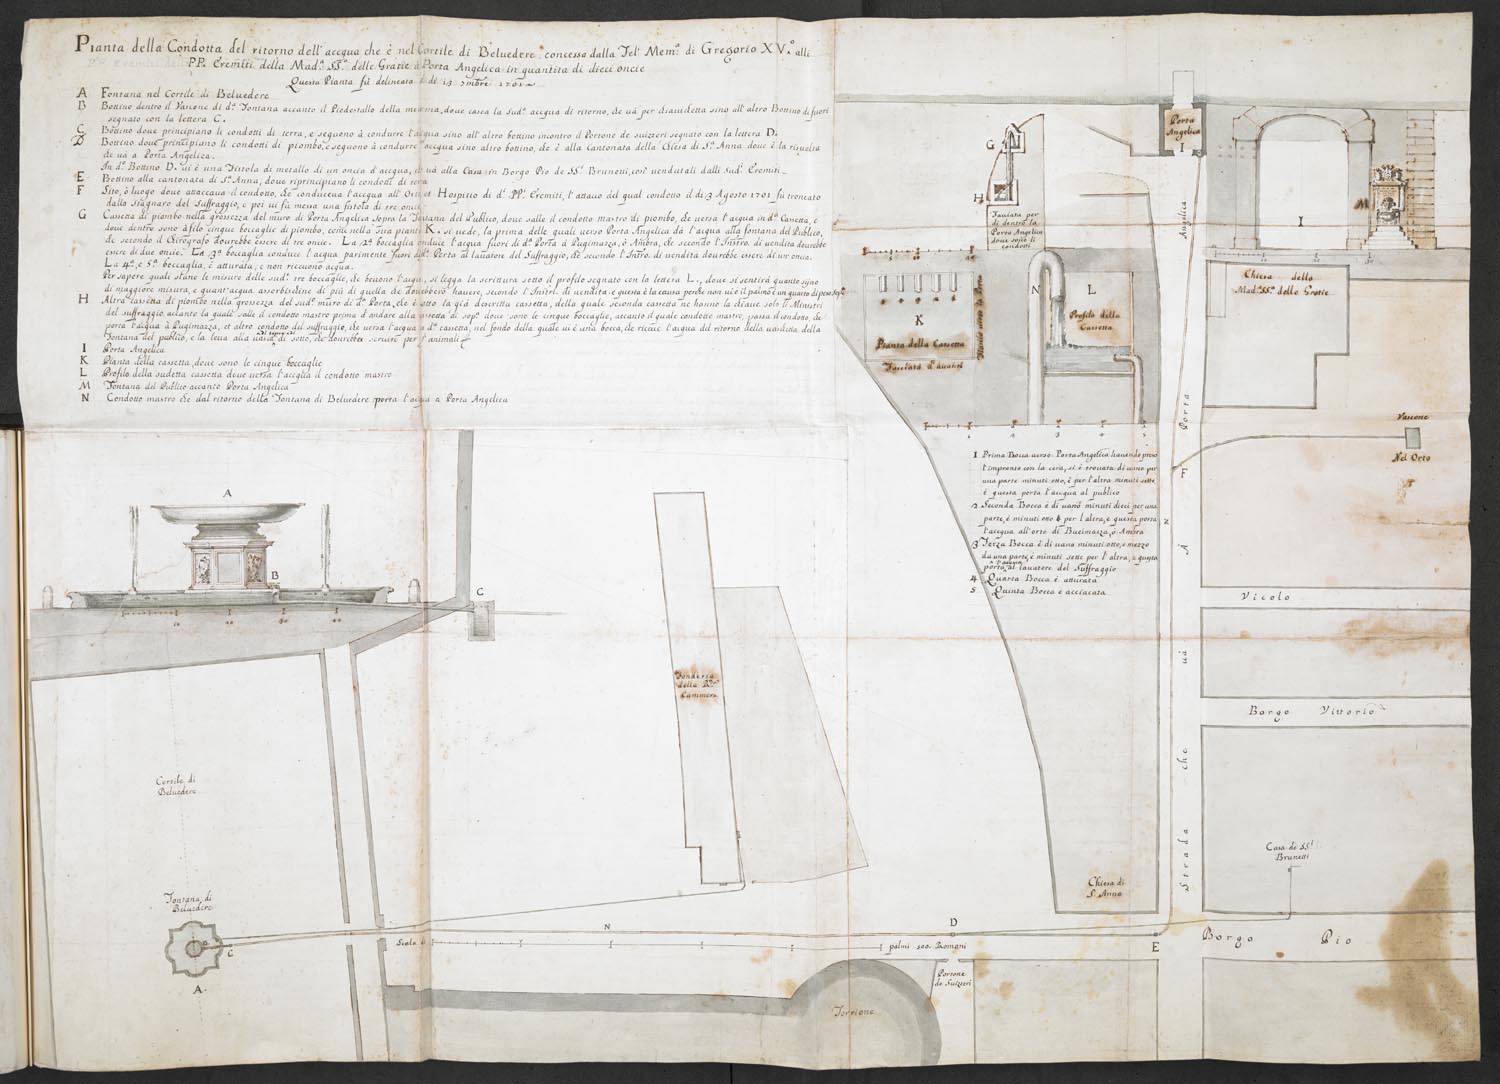 Pianta della Condotta del ritorno dell'accqua che è nel Cortile di Beluedere concessa dalla Fel: Mem:ª di Gregorio XV.º alli
PP. Eremiti della Mad.ª SS.ª delle Gratie à Porta Angelica in quantita di dieci oncie
Questa Pianta fù delineata di 7mbre 1701
A Fontana nel Cortile di Beluedere
B Bottino dentro il Vascone di d.ª Fontana accanto il Piedestallo della medema, doue casca la sud.ª accqua di ritorno, che uà per chiauichetta sino all'altro Bottino di fuori
segnato con la lettera C.
C Bottino doue principiano li condotti di terra, e seguono à condurre l'acqua sino all'altro bottino incontro il Portone de suizzeri segnato con la lettera D.
D Bottino doue principiano li condotti di piombo, e seguono à condurre l'accqua sino altro bottino, che è alla Cantonata della Chiesa di S.ª Anna doue è la risuolta
che uà a Porta Angelica.
In d.º Bottino D. ui è una Fistola di metallo di un oncia d'accqua, che uà alla Casa in Borgo Pio de SS.i Brunetti, così uendutali dalli Sud.i Eremiti.
E Bottino alla cantonata di S.ª Anna, doue riprincipiano li condotti di terra
F Sito, ò luogo doue attaccaua il condotto, che conduceua l'accqua all'Orto, et Hospitio di d.i PP.i Eremiti, l'attaco del qual condotto il di 3 Agosto 1701 fù troncato
dallo Stagnaro del Suffraggio, e poi ui fù messa una fistola di tre oncie
G Cassetta di piombo nella grossezza del muro di Porta Angelica sopra la Fontana del Publico, doue salle il condotto mastro di piombo, che uersa l'acqua in d.ª Cassetta, e
doue dentro sono àfilo cinque boccaglie di piombo, come nella sua pianta K. si uede, la prima delle quali uerso Porta Angelica dà l'acqua alla fontana del Publico,
che secondo il Chirografo dourebbe essere di tre oncie. La 2.ª boccaglia conduce l'acqua fuori di d.ª Porta à Pugimazza, ò Ambra, che secondo l'Instro. di uendita dourebbe
essere di due oncie. La 3.ª boccaglia conduce l'acqua parimente fuori dell.ª Porta al lauatore del Suffraggio, che secondo l'Intro. di uendita dourebbe essere di un oncia.
La 4.ª, e 5.ª boccaglia, è atturata, e non riceuono acqua.
Per sapere quali siano le misure delle sud.e tre boccaglie, che beuono l'acqua, si legga la scrittura sotto il profilo segnato con la lettera L., doue si sentirà quanto sijno
di maggiore misura, e quant'acqua assorbischino di più di quella che dourebbero hauere, secondo l'Instri. di uendita e questa è la causa perche non ui è il palmo, e un quarto di peso sopra
H Altra cassetta di piombo nella grossezza del sud.º muro di d.ª Porta, che è sotto la già descritta cassetta, della quale seconda cassetta ne hanno la chiaue solo li Ministri
del suffraggio, accanto la quale salle il condotto mastro prima d'andare alla cassetta di sop.ª doue sono le cinque boccaglie, accanto il quale condotto mastro, passa il condotto, che
porta l'acqua à Pugimazza, et altro condotto del suffraggio, che uersa l'acqua à d.ª cassetta, nel fondo della quale ui è una bocca, che riceue l'acqua del ritorno della uaschetta della
Fontana del publico, e la leua alla uasca di sotto, che dourebbe seruire per l'animali
I Porta Angelica
K Pianta della cassetta, doue sono le cinque boccaglie
L Profilo della sudetta cassetta doue uersa l'accqua il condotto mastro
M Fontana del Publico accanto Porta Angelica
N Condotto mastro che dal ritorno della Fontana di Beluedere porta l'acqua a Porta Angelica
Porta
Angelica
I
G
H
Facciata per
di dentro la
Porta Angelica
doue sono li
condotti
I
M
K
Pianta della Cassetta
Facciata d'auanti
N
L
Profilo della
Cassetta
Chiesa della
Mad.ª SS.ª delle Gratie
Vascone
Nel Orto
1 Prima Bocca uerso Porta Angelica hauendo preso
l'impronto con la cera, si è trouata di uano per
una parte minuti otto, è per l'altra minuti sette
è questa porta l'accqua al publico
2 Seconda Bocca è di uano minuti dieci per una
parte, è minuti otto per l'altra, e questa porta
l'accqua all'orto di Bucimazza, ò Ambra
3 Terza Bocca è di uano minuti otto, e mezzo
da una parte, è minuti sette per l'altra, e questa
porta l'accqua al lauatore del Suffraggio
4 Quarta Bocca è atturata
5 Quinta Bocca è acciacata
A
B
C
Fonderia
della R.
Cammera
Cortile di
Beluedere
Fontana di
Beluedere
C
A
N
Scala di palmi 500. Romani
D
Portone
de Suizzeri
Torrione
Chiesa di
S. Anna
E
Strada che uà à Porta Angelica
F
N
Vicolo
Borgo Vittorio
Casa de SS.i
Brunetti
Borgo Pio